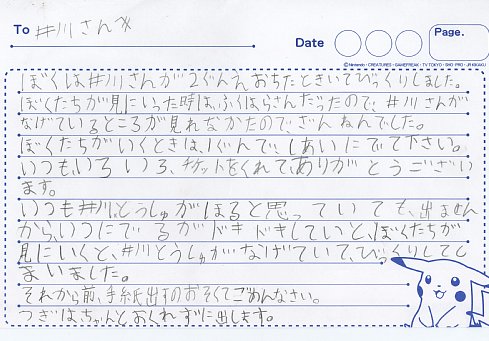 To 井川さんへ
Date
Page.
©Nintendo・CREATURES・GAMEFREAK・TV TOKYO・SHO-PRO・JR KIKAKU
ぼくは井川さんが2ぐんえおちたときいてびっくりしました。
ぼくたちが見にいった時は、ふくはらさんだったので、井川さんが
なげているところが見れなかたので、ざんねんでした。
ぼくたちがいくときは、1ぐんで、しあいにでて下さい。
いつも、いろいろ、チケットをくれて、ありがとうござい
ます。
いつも井川とうしゅがほると思っていても、出ません
から、いつにでるがドキドキしていと、ぼくたちが
見にいくと、井川とうしゅがなげていて、びっくりしてし
まいました。
それから前、手紙出すのおそくてごめんなさい。
つぎは、ちゃんとおくれずに出します。